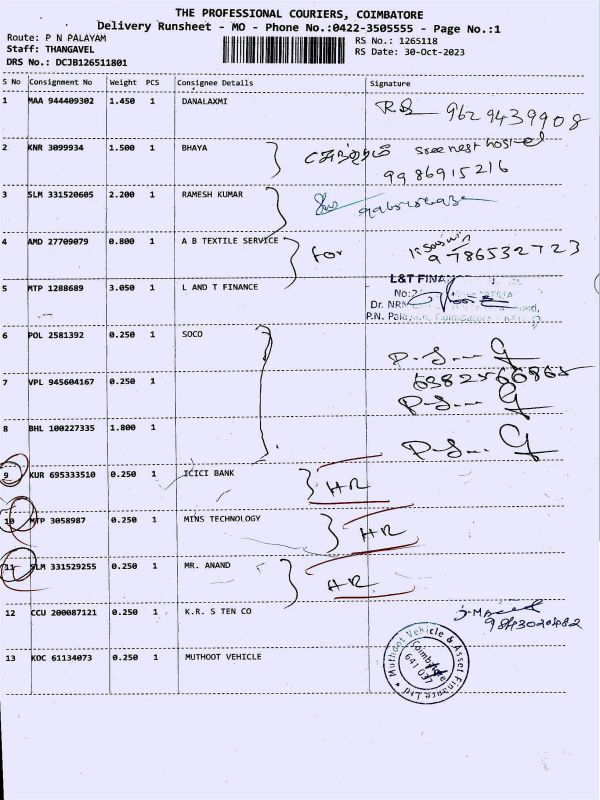 THE PROFESSIONAL COURIERS, COIMBATORE
Delivery Runsheet - MO - Phone No.:0422-3505555 - Page No.:1
Route: P N PALAYAM
RS No.: 1265118
Staff: THANGAVEL
RS Date: 30-Oct-2023
DRS No.: DCJB126511801
S No Consignment No Weight PCS Consignee Details Signature
1 MAA 944409302 1.450 1 DANALAXMI
9629439908
2 KNR 3099934 1.500 1 BHAYA
Sree nest hostel
9986915216
3 SLM 331520605 2.200 1 RAMESH KUMAR
4 AMD 27709079 0.800 1 A B TEXTILE SERVICE
for
9786532723
5 MTP 1288689 3.050 1 L AND T FINANCE
L&T FINA
No:2
Dr. NRN
P.N. Pala
6 POL 2581392 0.250 1 SOCO
7 VPL 945604167 0.250 1
8 BHL 100227335 1.800 1
9 KUR 695333510 0.250 1 ICICI BANK
HR
10 MTP 3058987 0.250 1 MINS TECHNOLOGY
HR
11 SLM 331529255 0.250 1 MR. ANAND
HR
12 CCU 200087121 0.250 1 K.R. S TEN CO
9843020482
13 KOC 61134073 0.250 1 MUTHOOT VEHICLE
Muthoot Vehicle & Asset Finance Ltd
Coimbatore
641 037